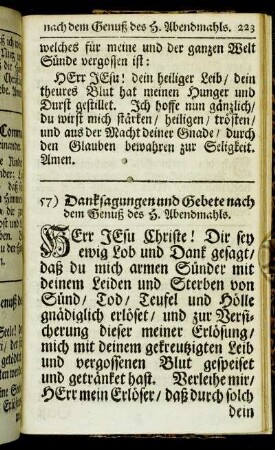 nach dem Genuß des H. Abendmahls. 223
welches für meine und der ganzen Welt
Sünde vergossen ist:
HErr JEsu! dein heiliger Leib/ dein
theures Blut hat meinen Hunger und
Durst gestillet. Ich hoffe nun gänzlich/
du wirst mich stärken/ heiligen/ trösten/
und aus der Macht deiner Gnade/ durch
den Glauben bewahren zur Seligkeit.
Amen.
57) Danksagungen und Gebete nach
dem Genuß des H. Abendmahls.
HErr JEsu Christe! Dir sey
ewig Lob und Dank gesagt/
daß du mich armen Sünder mit
deinem Leiden und Sterben von
Sünd/ Tod/ Teufel und Hölle
gnädiglich erlöset/ und zur Versi-
cherung dieser meiner Erlösung/
mich mit deinem gekreutzigten Leib
und vergossenen Blut gespeiset
und getränket hast. Verleihe mir/
HErr mein Erlöser/ daß durch solch
dein